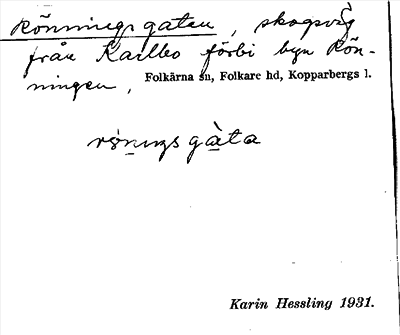 Rönningsgatan, skogsväg
från Karlbo förbi byn Rön-
ningen,
Folkärna sn, Folkare hd, Kopparbergs l.
Karin Hessling 1931.